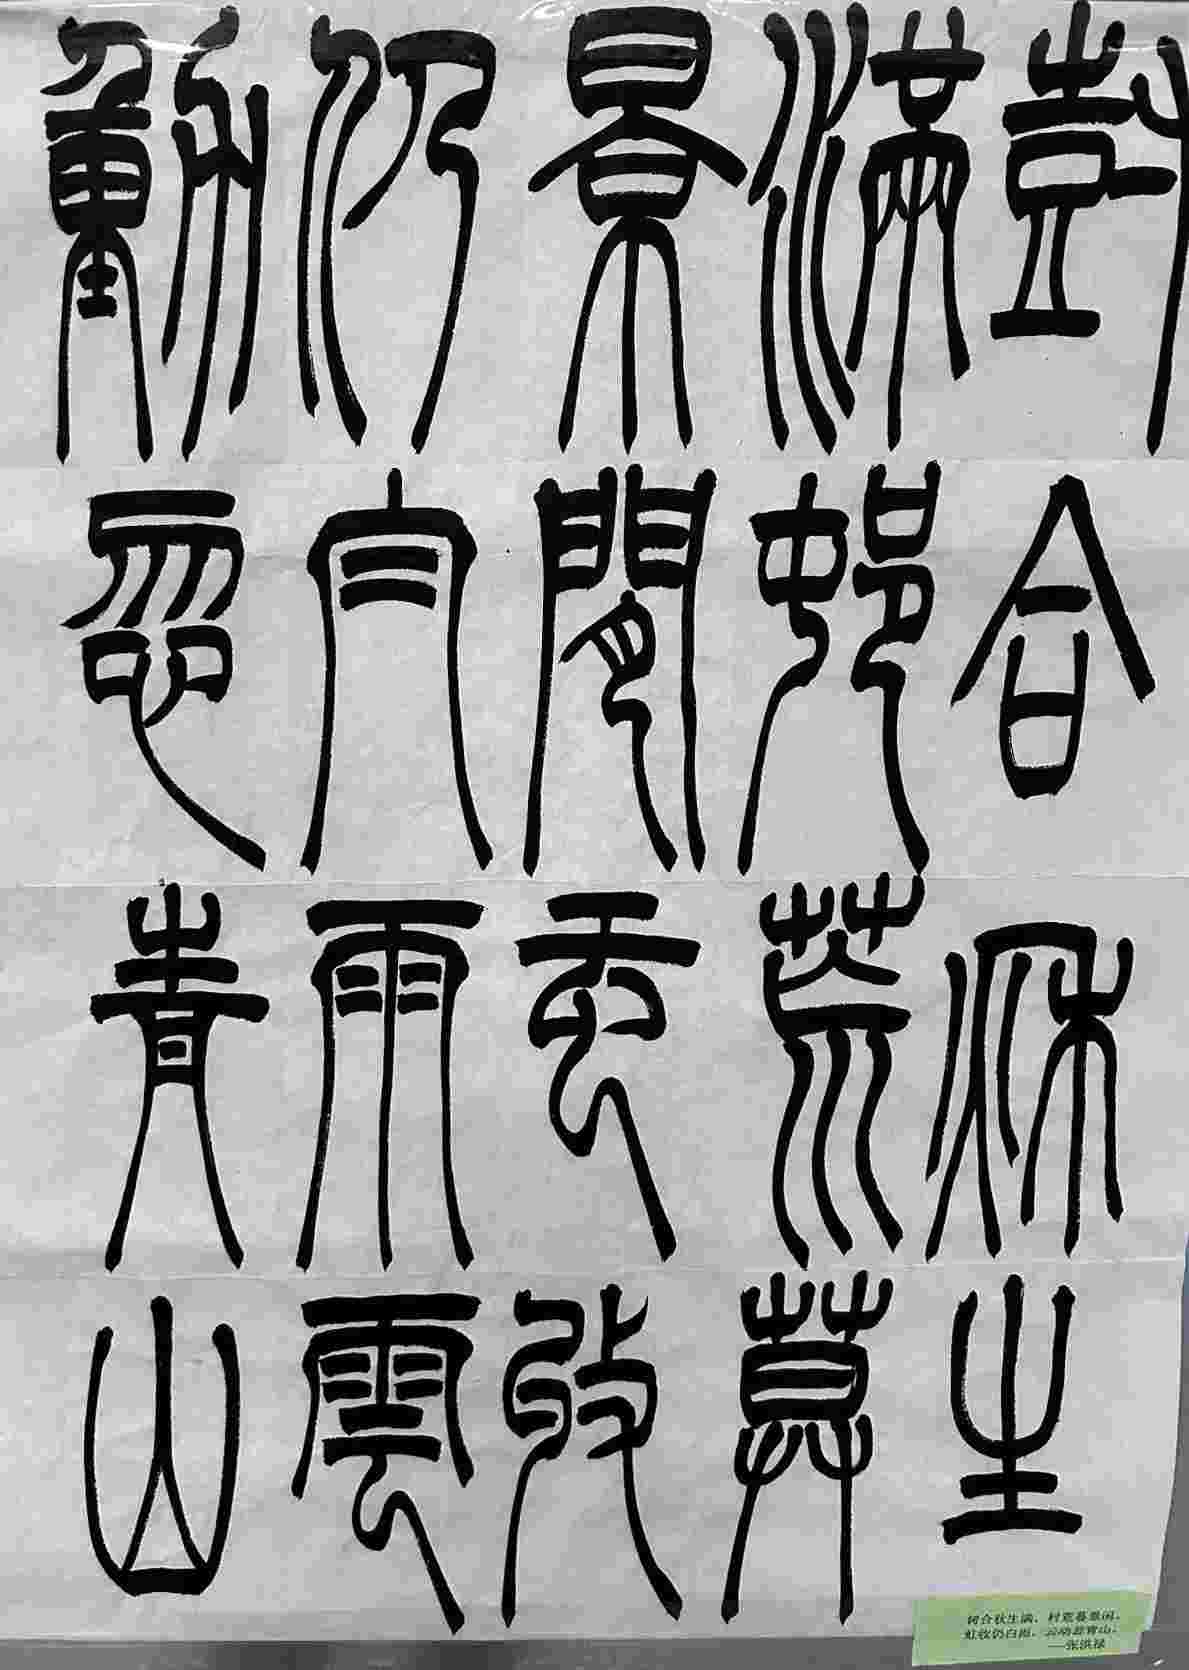 尌合秋生
滿邨荒莫
景閒虹收
仍白雨雲
動忽青山
树合秋生满，村荒暮景闲，
虹收仍白雨，云动忽青山。
——张洪禄